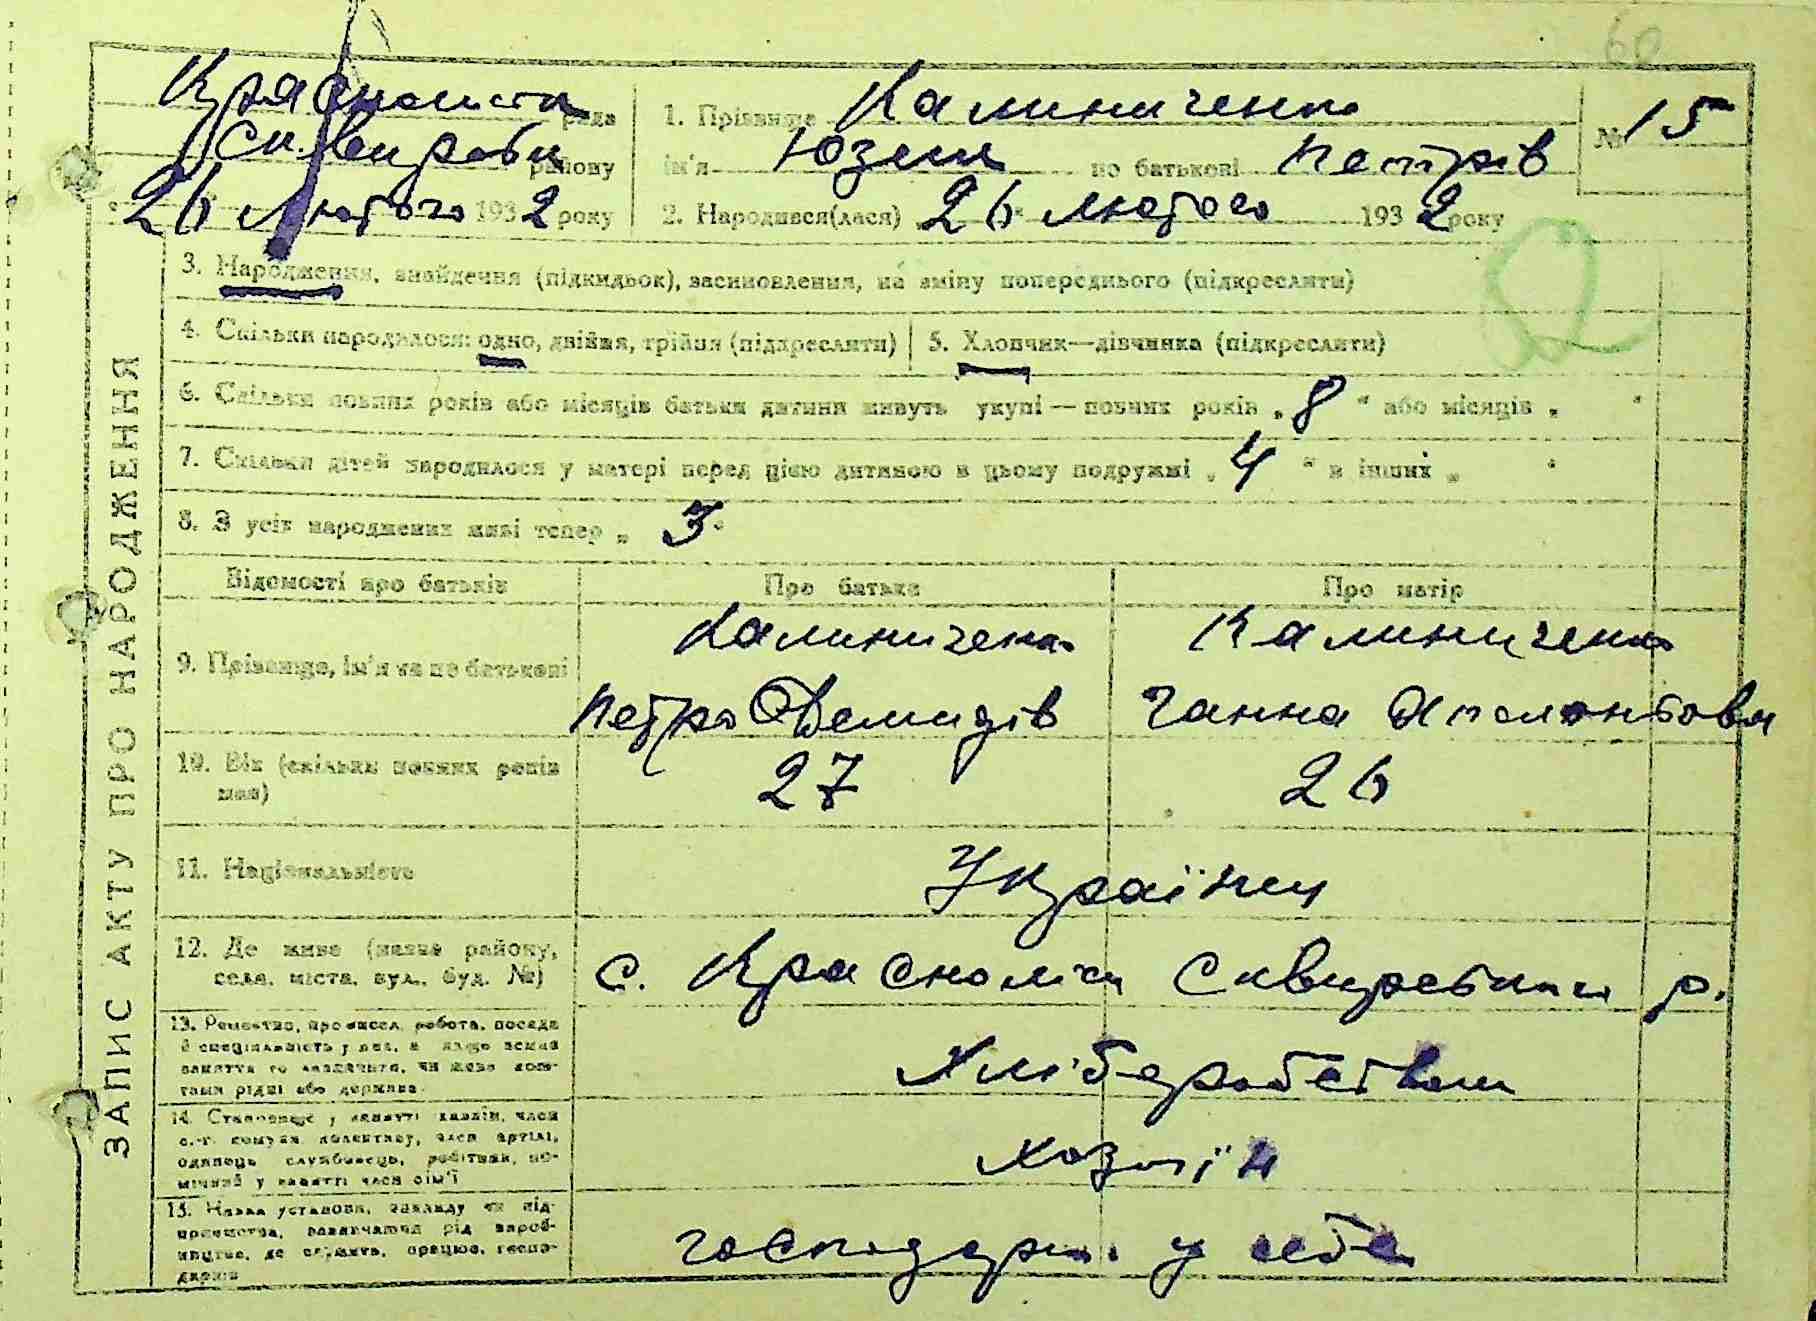 60
Красноліси рада
Сквирськ району
26 Лютого 1932 року
1. Прізвище Калиниченко
ім'я Юзеш по батькові Петрів
2. Народився(лася) 26 Лютого 1932 року
№ 15
3. Народження, знайдення (підкидьок), засиновлення, на зміну попереднього (підкреслити)
4. Скільки народилося: одно, двійня, трійня (підкреслити) 5. Хлопчик—дівчинка (підкреслити)
6. Скільки повних років або місяців батьки дитини живуть укупі — повних років „8“ або місяців „ “
7. Скільки дітей народилося у матері перед цією дитиною в цьому подружжі „4“ в інших „ “
8. З усіх народжених живі тепер „3“
ЗАПИС АКТУ ПРО НАРОДЖЕННЯ
Відомості про батьків Про батька Про матір
9. Прізвище, ім'я та по батькові
Калиниченко Калиниченко
Петро Демидів Ганна
10. Вік (скільки повних років має) 27 26
11. Національність Українец
12. Де живе (назва району,
села, міста, вул., буд. №) с. Красноліси Сквирського р.
13. Ремество, промисел, робота, посада
Хліборобством
14. Становище у занятті хазяїн, член
с.-г. комуни, колективу, член артілі,
одинець, службовець, робітник, по-
мічний у занятті член сім'ї
Хозяїн
15. Назва установи, закладу чи під-
приємства, зазначаючи рід вироб-
ництва, де служить, працює, госпо-
дарює
господарює у себе